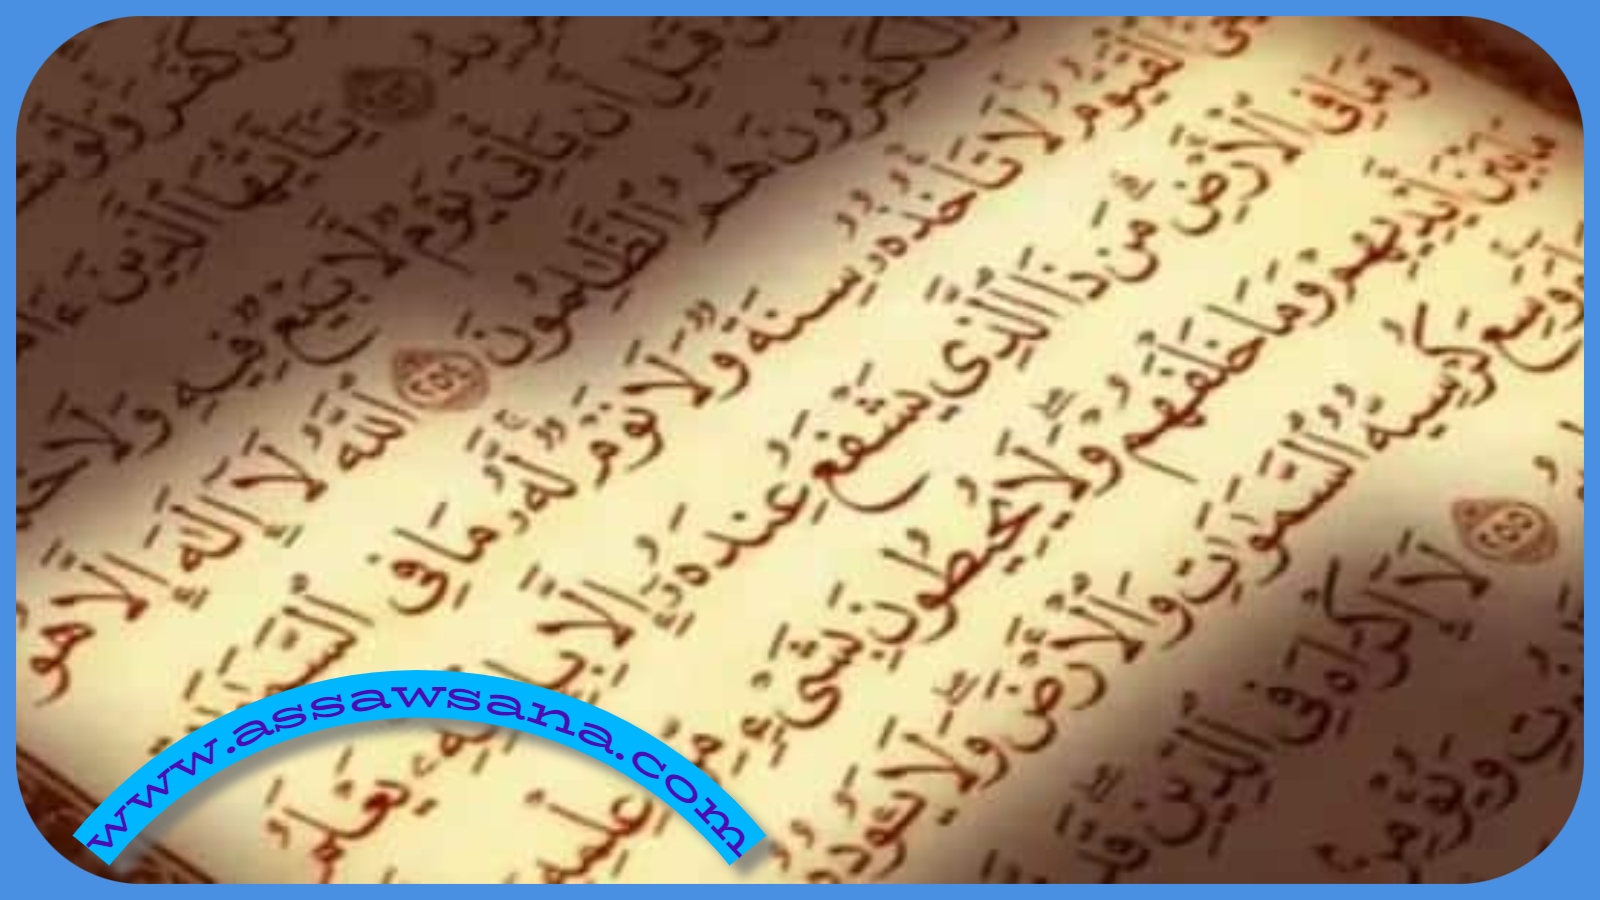 كَفَرَ وَلَوْ
يُرِيدُ ٢٥٣ يَٰٓأَيُّهَا ٱلَّذِينَ
قَبْلِ أَن يَأْتِىَ يَوْمٌ لَّا بَيْعٌ فِيهِ وَلَا
وَٱلْكَٰفِرُونَ هُمُ ٱلظَّٰلِمُونَ ٢٥٤ ٱللَّهُ لَآ إِلَٰهَ إِلَّا هُوَ
ٱلْقَيُّومُ لَا تَأْخُذُهُۥ سِنَةٌ وَلَا نَوْمٌ لَّهُۥ مَا فِى ٱلسَّمَٰوَٰتِ
وَمَا فِى ٱلْأَرْضِ مَن ذَا ٱلَّذِى يَشْفَعُ عِندَهُۥٓ إِلَّا بِإِذْنِهِۦ يَعْلَمُ
بَيْنَ أَيْدِيهِمْ وَمَا خَلْفَهُمْ وَلَا يُحِيطُونَ بِشَىْءٍ مِّنْ عِلْمِهِۦٓ
وَسِعَ كُرْسِيُّهُ ٱلسَّمَٰوَٰتِ وَٱلْأَرْضَ وَلَا يَـُٔودُهُۥ
٢٥٥ لَآ إِكْرَاهَ فِى ٱلدِّينِ قَد
وَيُؤْمِنۢ
www.assawsana.com